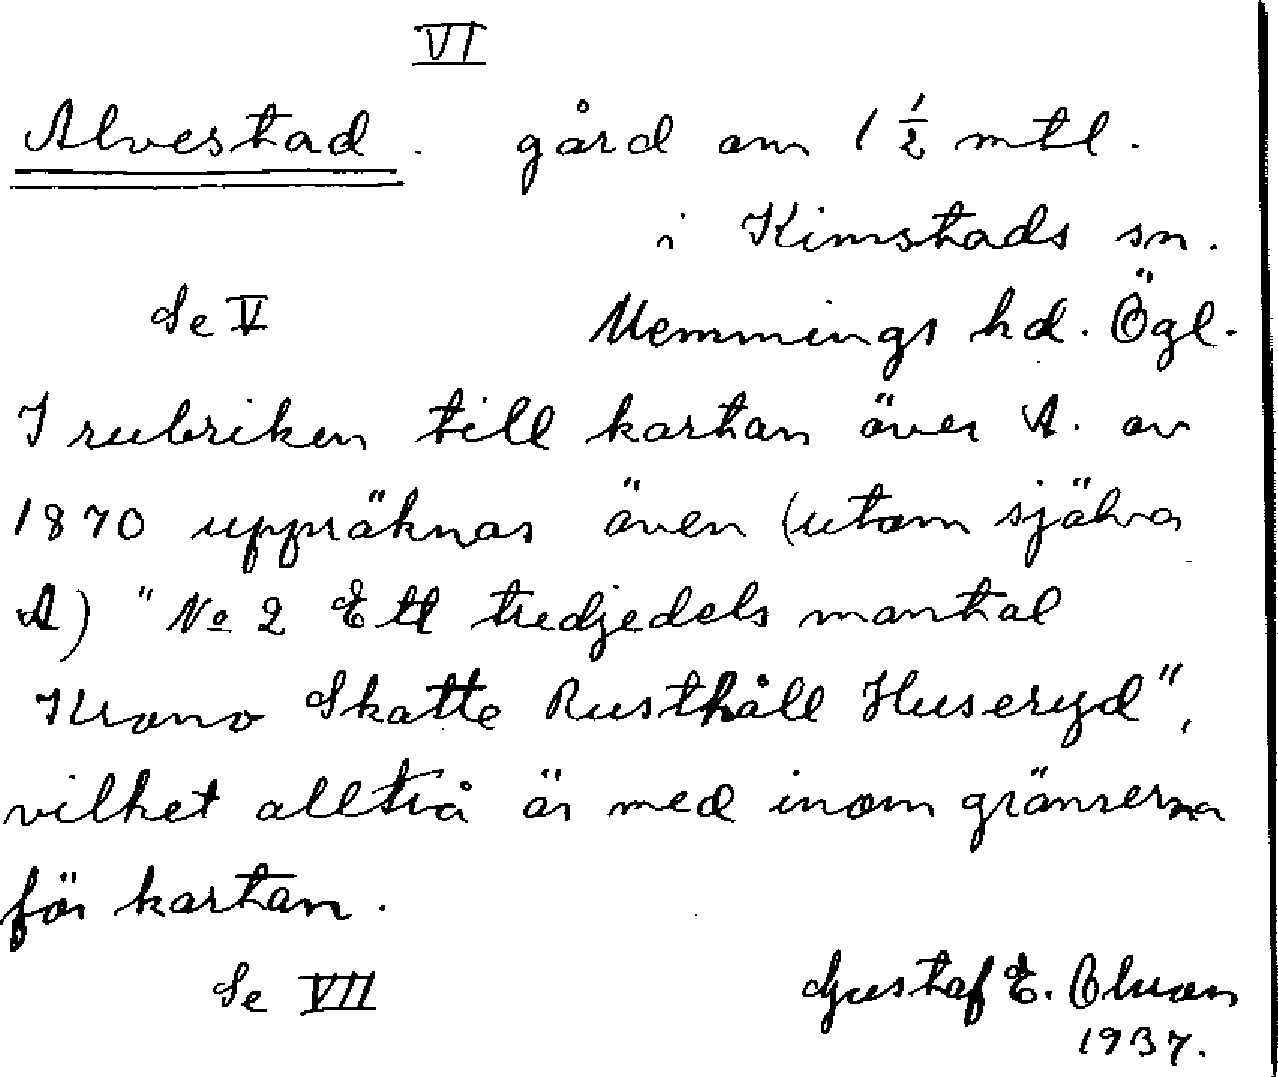 VI
Alvestad. gård om 1 1/2 mtl.
i Kimstads sn.
Se V Memmings hd. Ögl.
I rubriken till kartan över A. av
1870 uppräknas även (utom själva
A) "No 2 Ett tredjedels mantal
Krono Skatte Rusthåll Huseryd",
vilket alltså är med inom gränserna
för kartan.
Se VII Gustaf E.
1937.